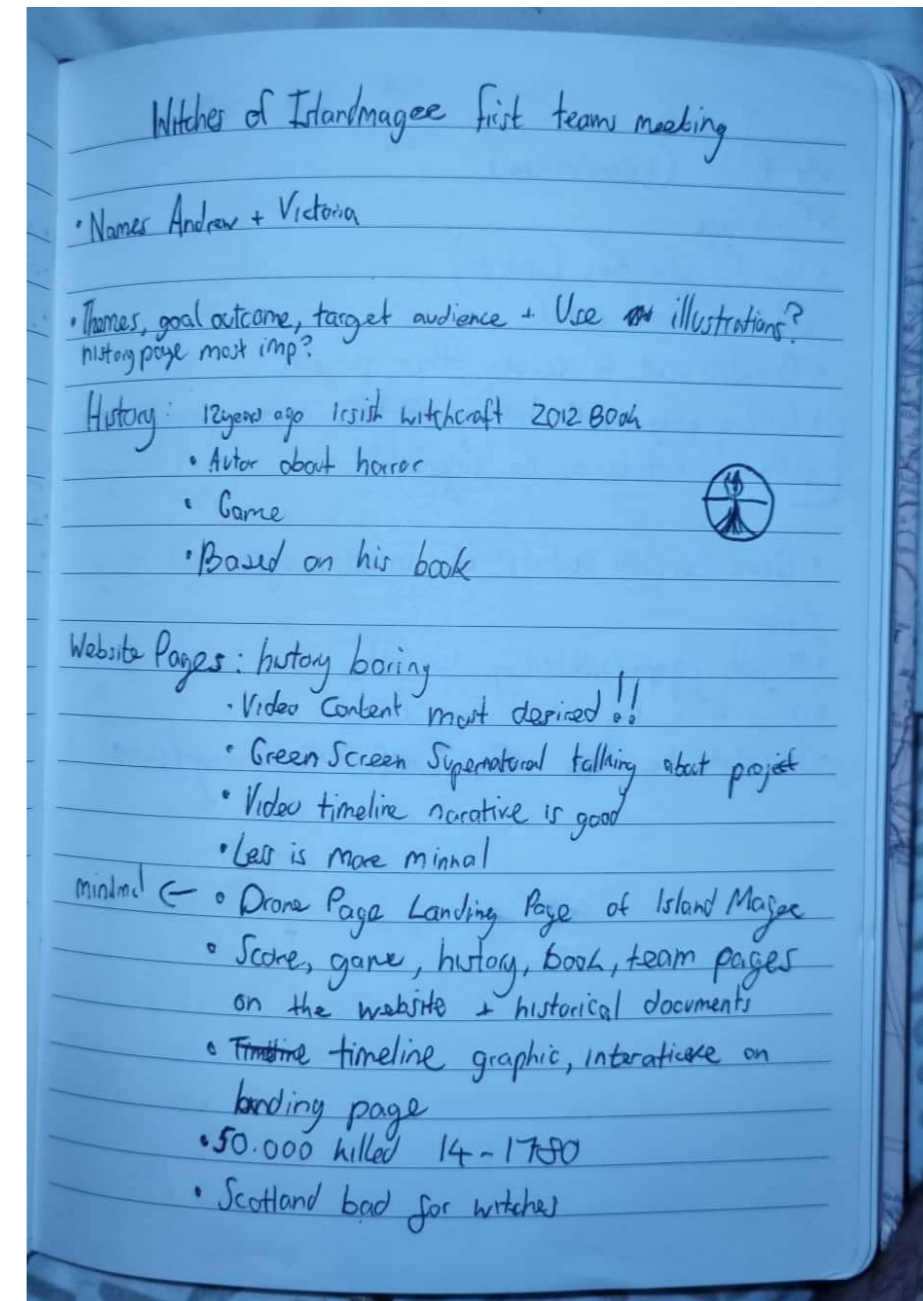 Witches of Islandmagee first team meeting
• Names Andrew + Victoria
• Themes, goal outcome, target audience + Use illustrations?
history page most imp?
History: 12 years ago irsish witchcraft 2012 Book
• Autor about horror
• Game
• Based on his book
Website Pages: history boring
• Video Content most desired!!
• Green Screen Supernatural talking about project
• Video timeline narative is good
• Less is more minmal
minimal ← • Drone Page Landing Page of Island Magee
• Score, game, history, book, team pages
on the website + historical documents
• Timeline timeline graphic, interaticve on
landing page
• 50.000 killed 14-1780
• Scotland bad for witches